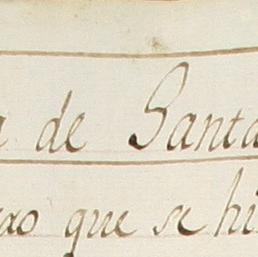 a de Santa
que se hi